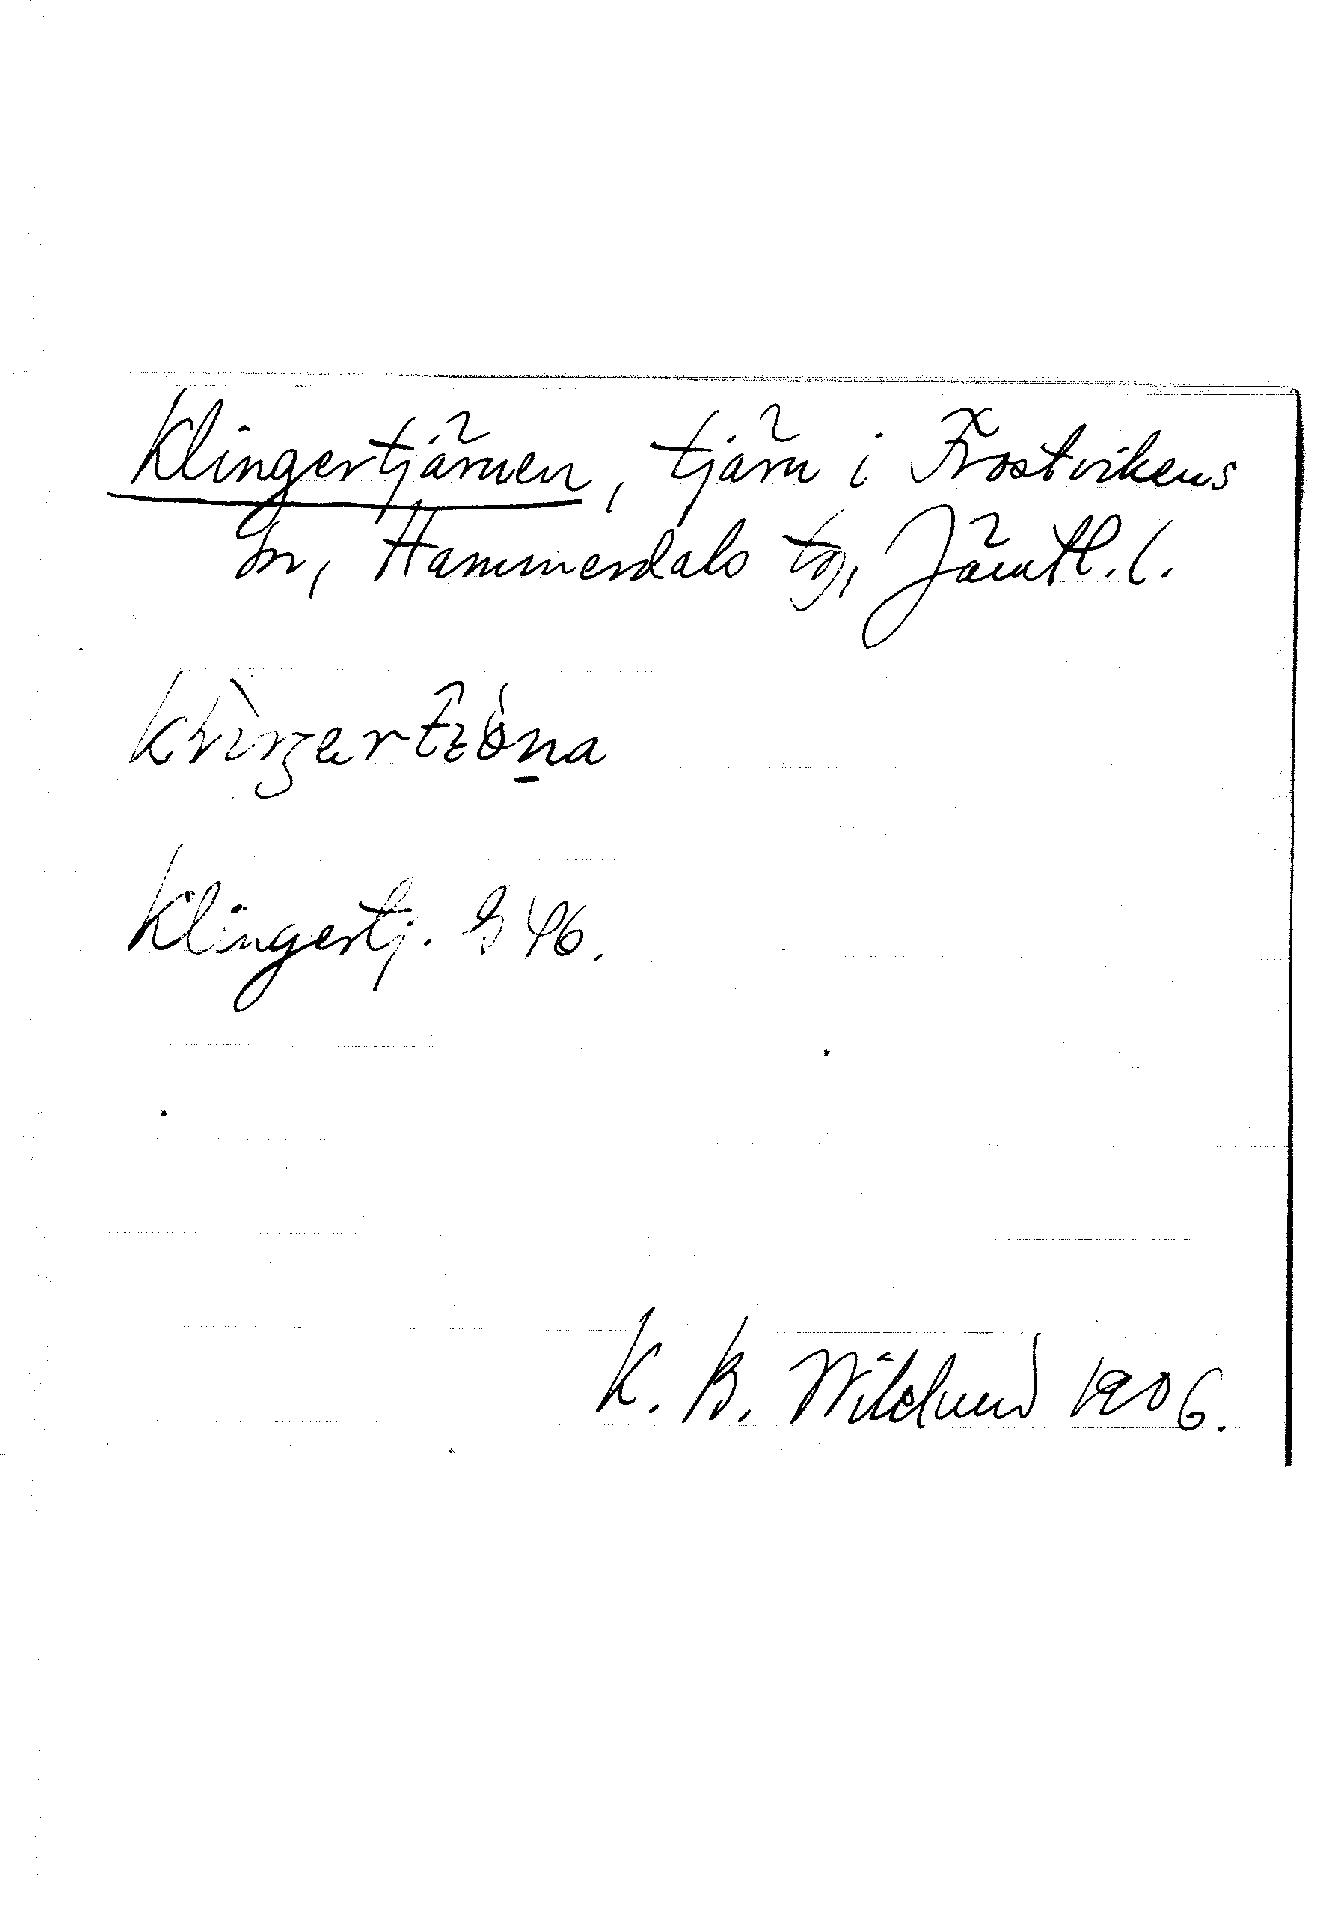 Klingertjärnen, tjärn i Frostvikens
sn, Hammerdals tg, Jämtl. l.
Klingertj. G 46.
K. B. Wiklund 1906.